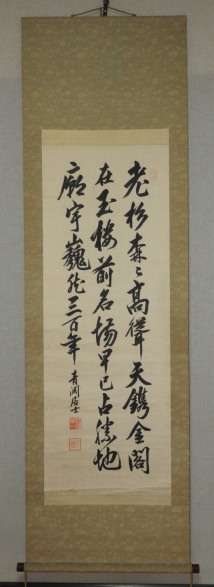 老杉森々高聳天鐫金閣
在玉楼前名場早已占勝地
廟宇巍然三百年 青淵居士